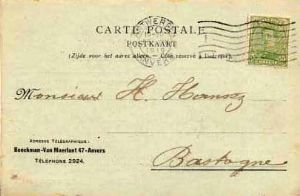 CARTE POSTALE
POSTKAART
(Zijde voor het adres alleen. — Côté réservé à l'adresse.)
Monsieur H.
ADRESSE TÉLÉGRAPHIQUE:
Beeckman-Van Maerlant 47-Anvers
TÉLÉPHONE 2924.
Bastogne